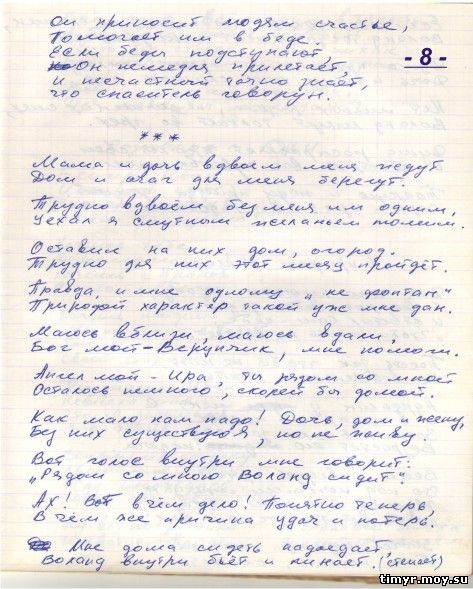 Он приносит людям счастье,
Помогает им в беде.
Если беды подступают,
Он немедля прилетает,
и несчастный точно знает,
что спаситель говорун.
- 8 -
***
Мама и дочь вдвоём меня ждут
Дом и очаг для меня берегут.
Трудно вдвоём без меня им одним,
Уехал я смутным желаньем томим.
Оставил на них дом, огород.
Трудно для них этот месяц пройдёт.
Правда, и мне одному „не фонтан"
Природой характер такой уж мне дан.
Маюсь вблизи, маюсь вдали,
Бог мой - Верунчик, мне помоги.
Ангел мой - Ира, ты рядом со мной
Осталось немного, скорей бы домой.
Как мало нам надо! Дочь, дом и жену,
Без них существую я, но не живу.
Вот голос внутри мне говорит:
„Рядом со мною Воланд сидит"
Ах! Вот в чём дело! Понятно теперь,
В чём же причина удач и потерь.
Мне дома сидеть надоедает,
Воланд внутри бьёт и пинает. (стенает)
timyr.moy.su